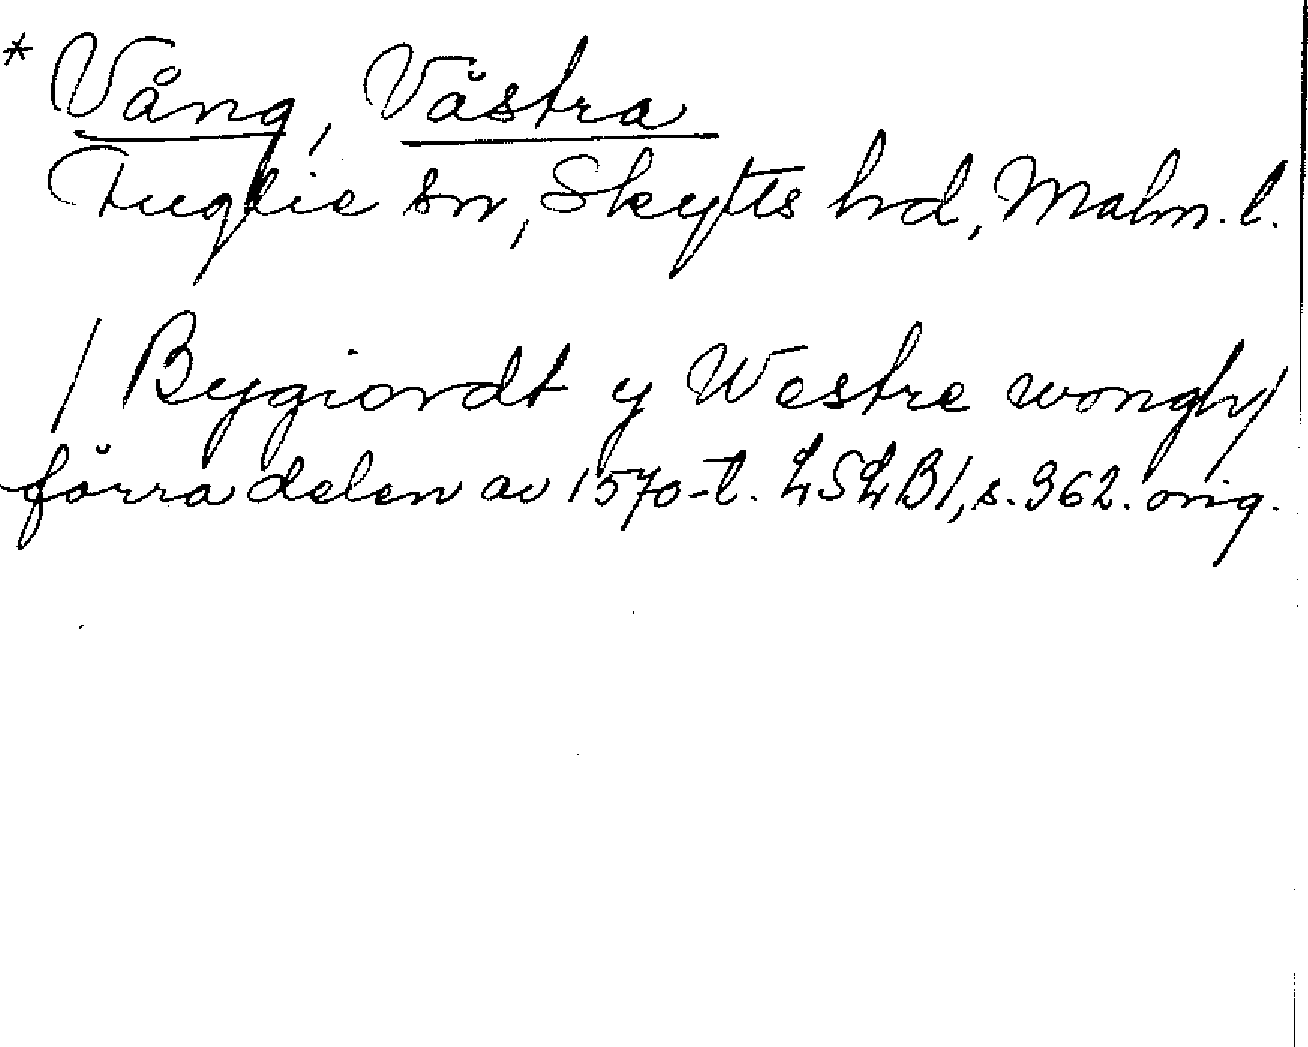 * Vång, Västra
Fuglie sn, Skytts hd, Malm. l.
/ Bygiordt y Westre wongh/
förra delen av 1570-t. LSLB1, s. 362. orig.